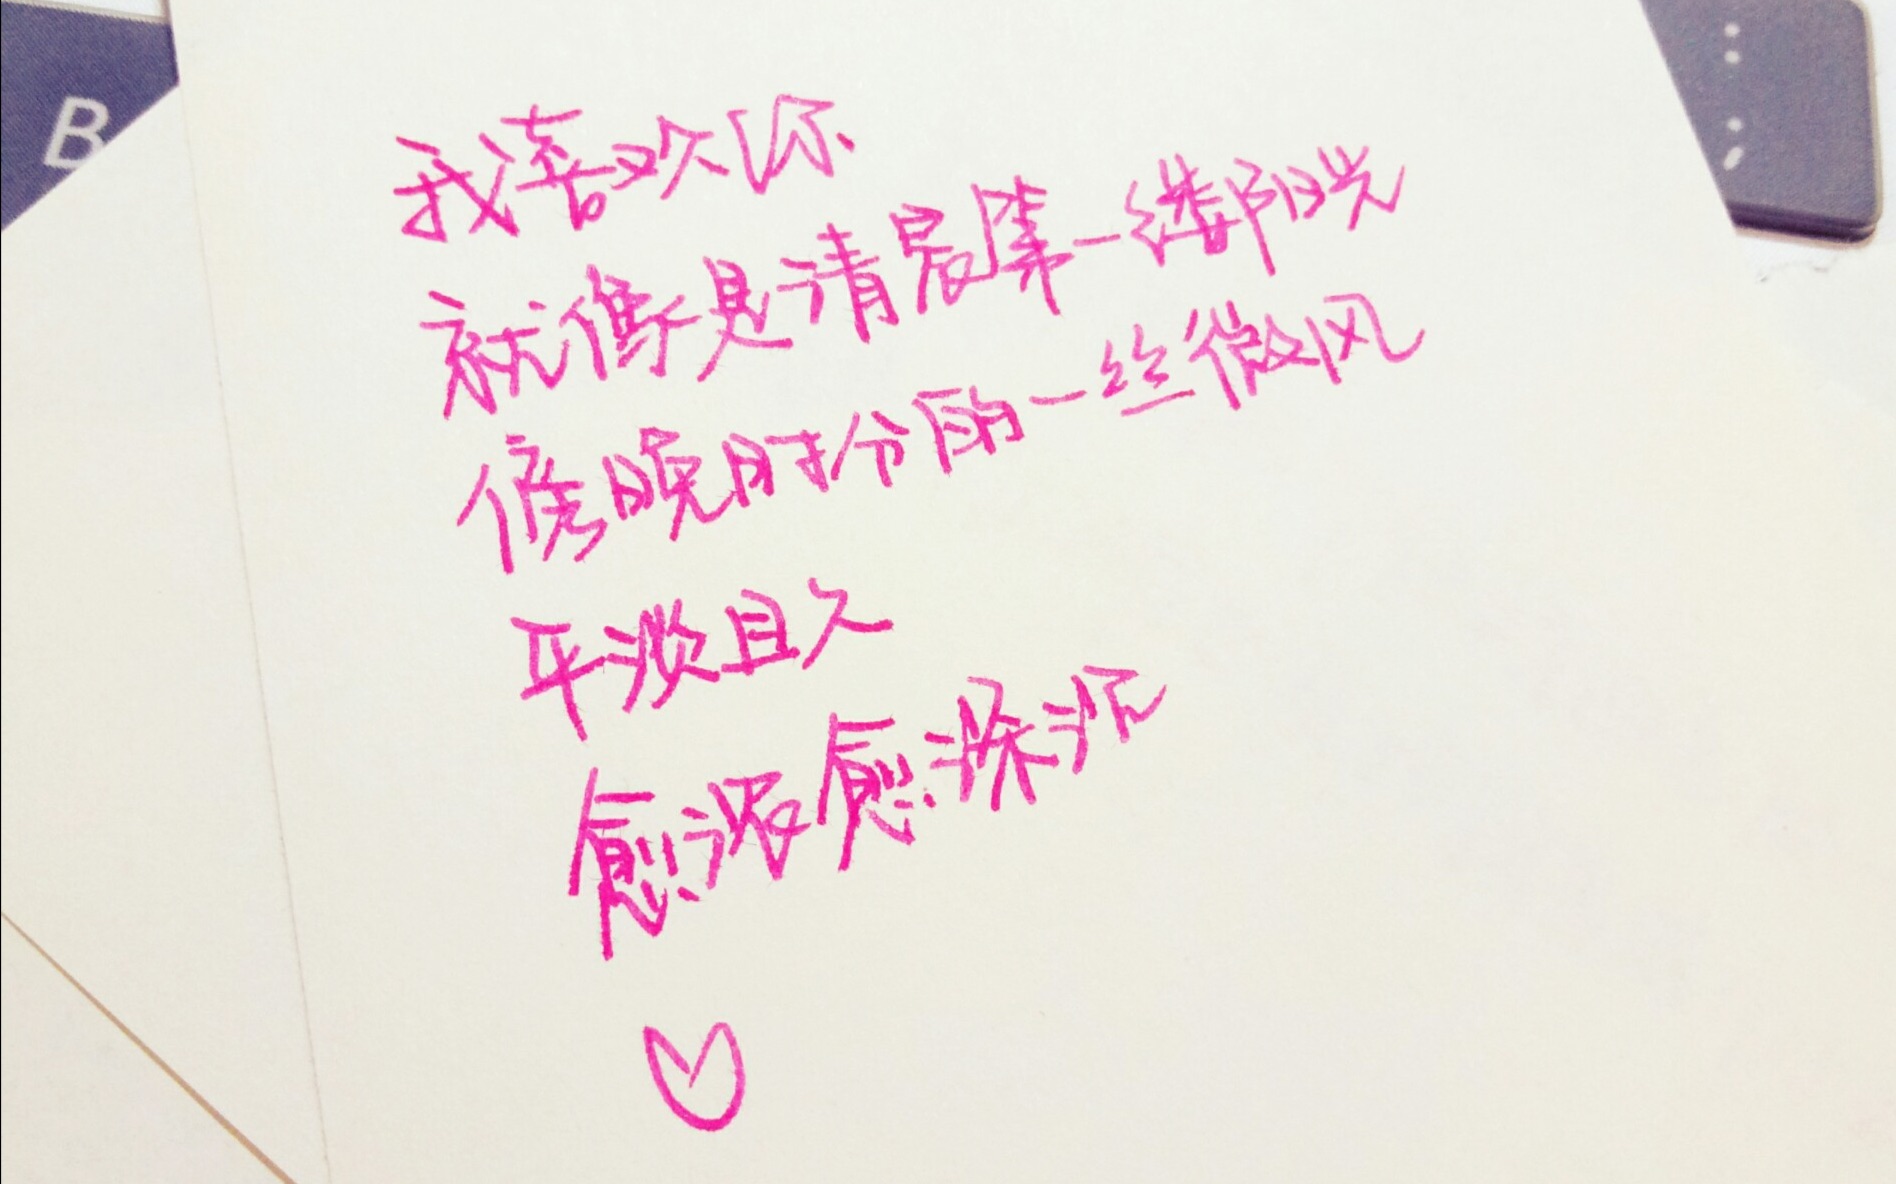 B
我喜欢你
就像是清晨第一缕阳光
傍晚时分的一丝微风
平淡且久
愈浓愈深沉